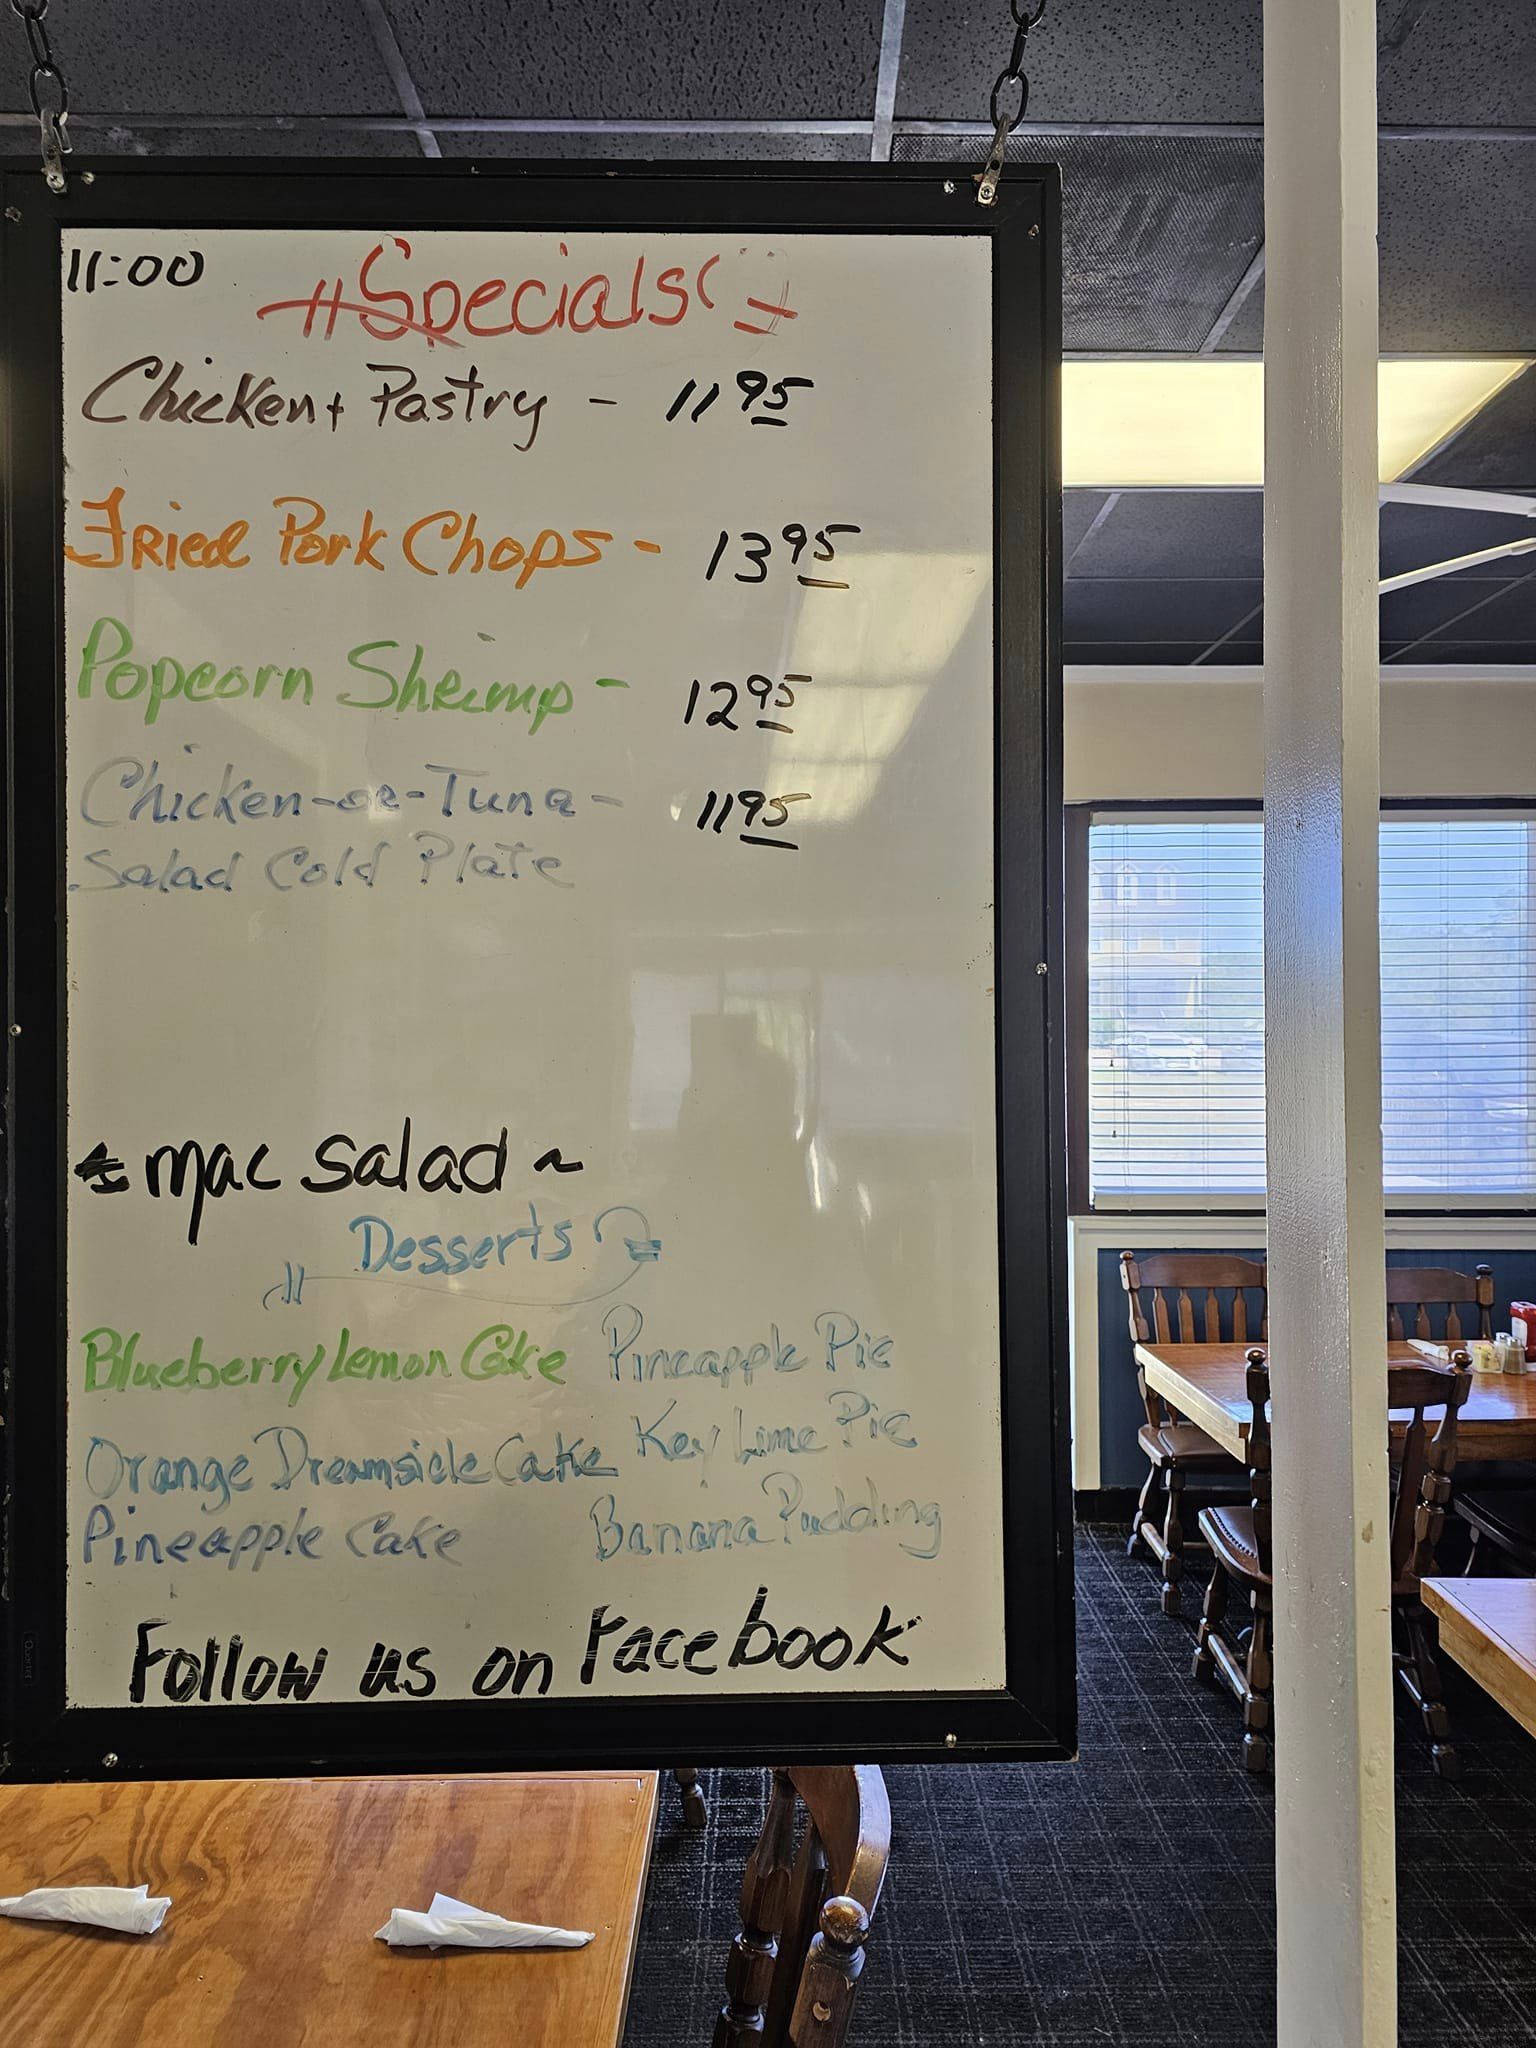 11:00 Specials
Chicken + Pastry - 11 95
Fried Pork Chops - 13 95
Popcorn Shrimp - 12 95
Chicken-or-Tuna - 11 95
Salad Cold Plate
mac salad ~
Desserts
Blueberry Lemon Cake Pineapple Pie
Orange Dreamsicle Cake Key Lime Pie
Pineapple Cake Banana Pudding
Follow us on Facebook